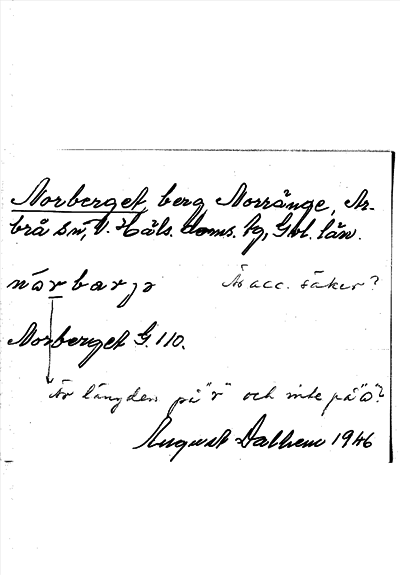 Norberget, berg Norränge, Ar-
brå sn, V. Häls. doms. tg, Gvl. län.
nárbarjə Är acc. säker?
Norberget G. 110.
Är längden på "r" och inte på "a"?
August Dalhem 1946